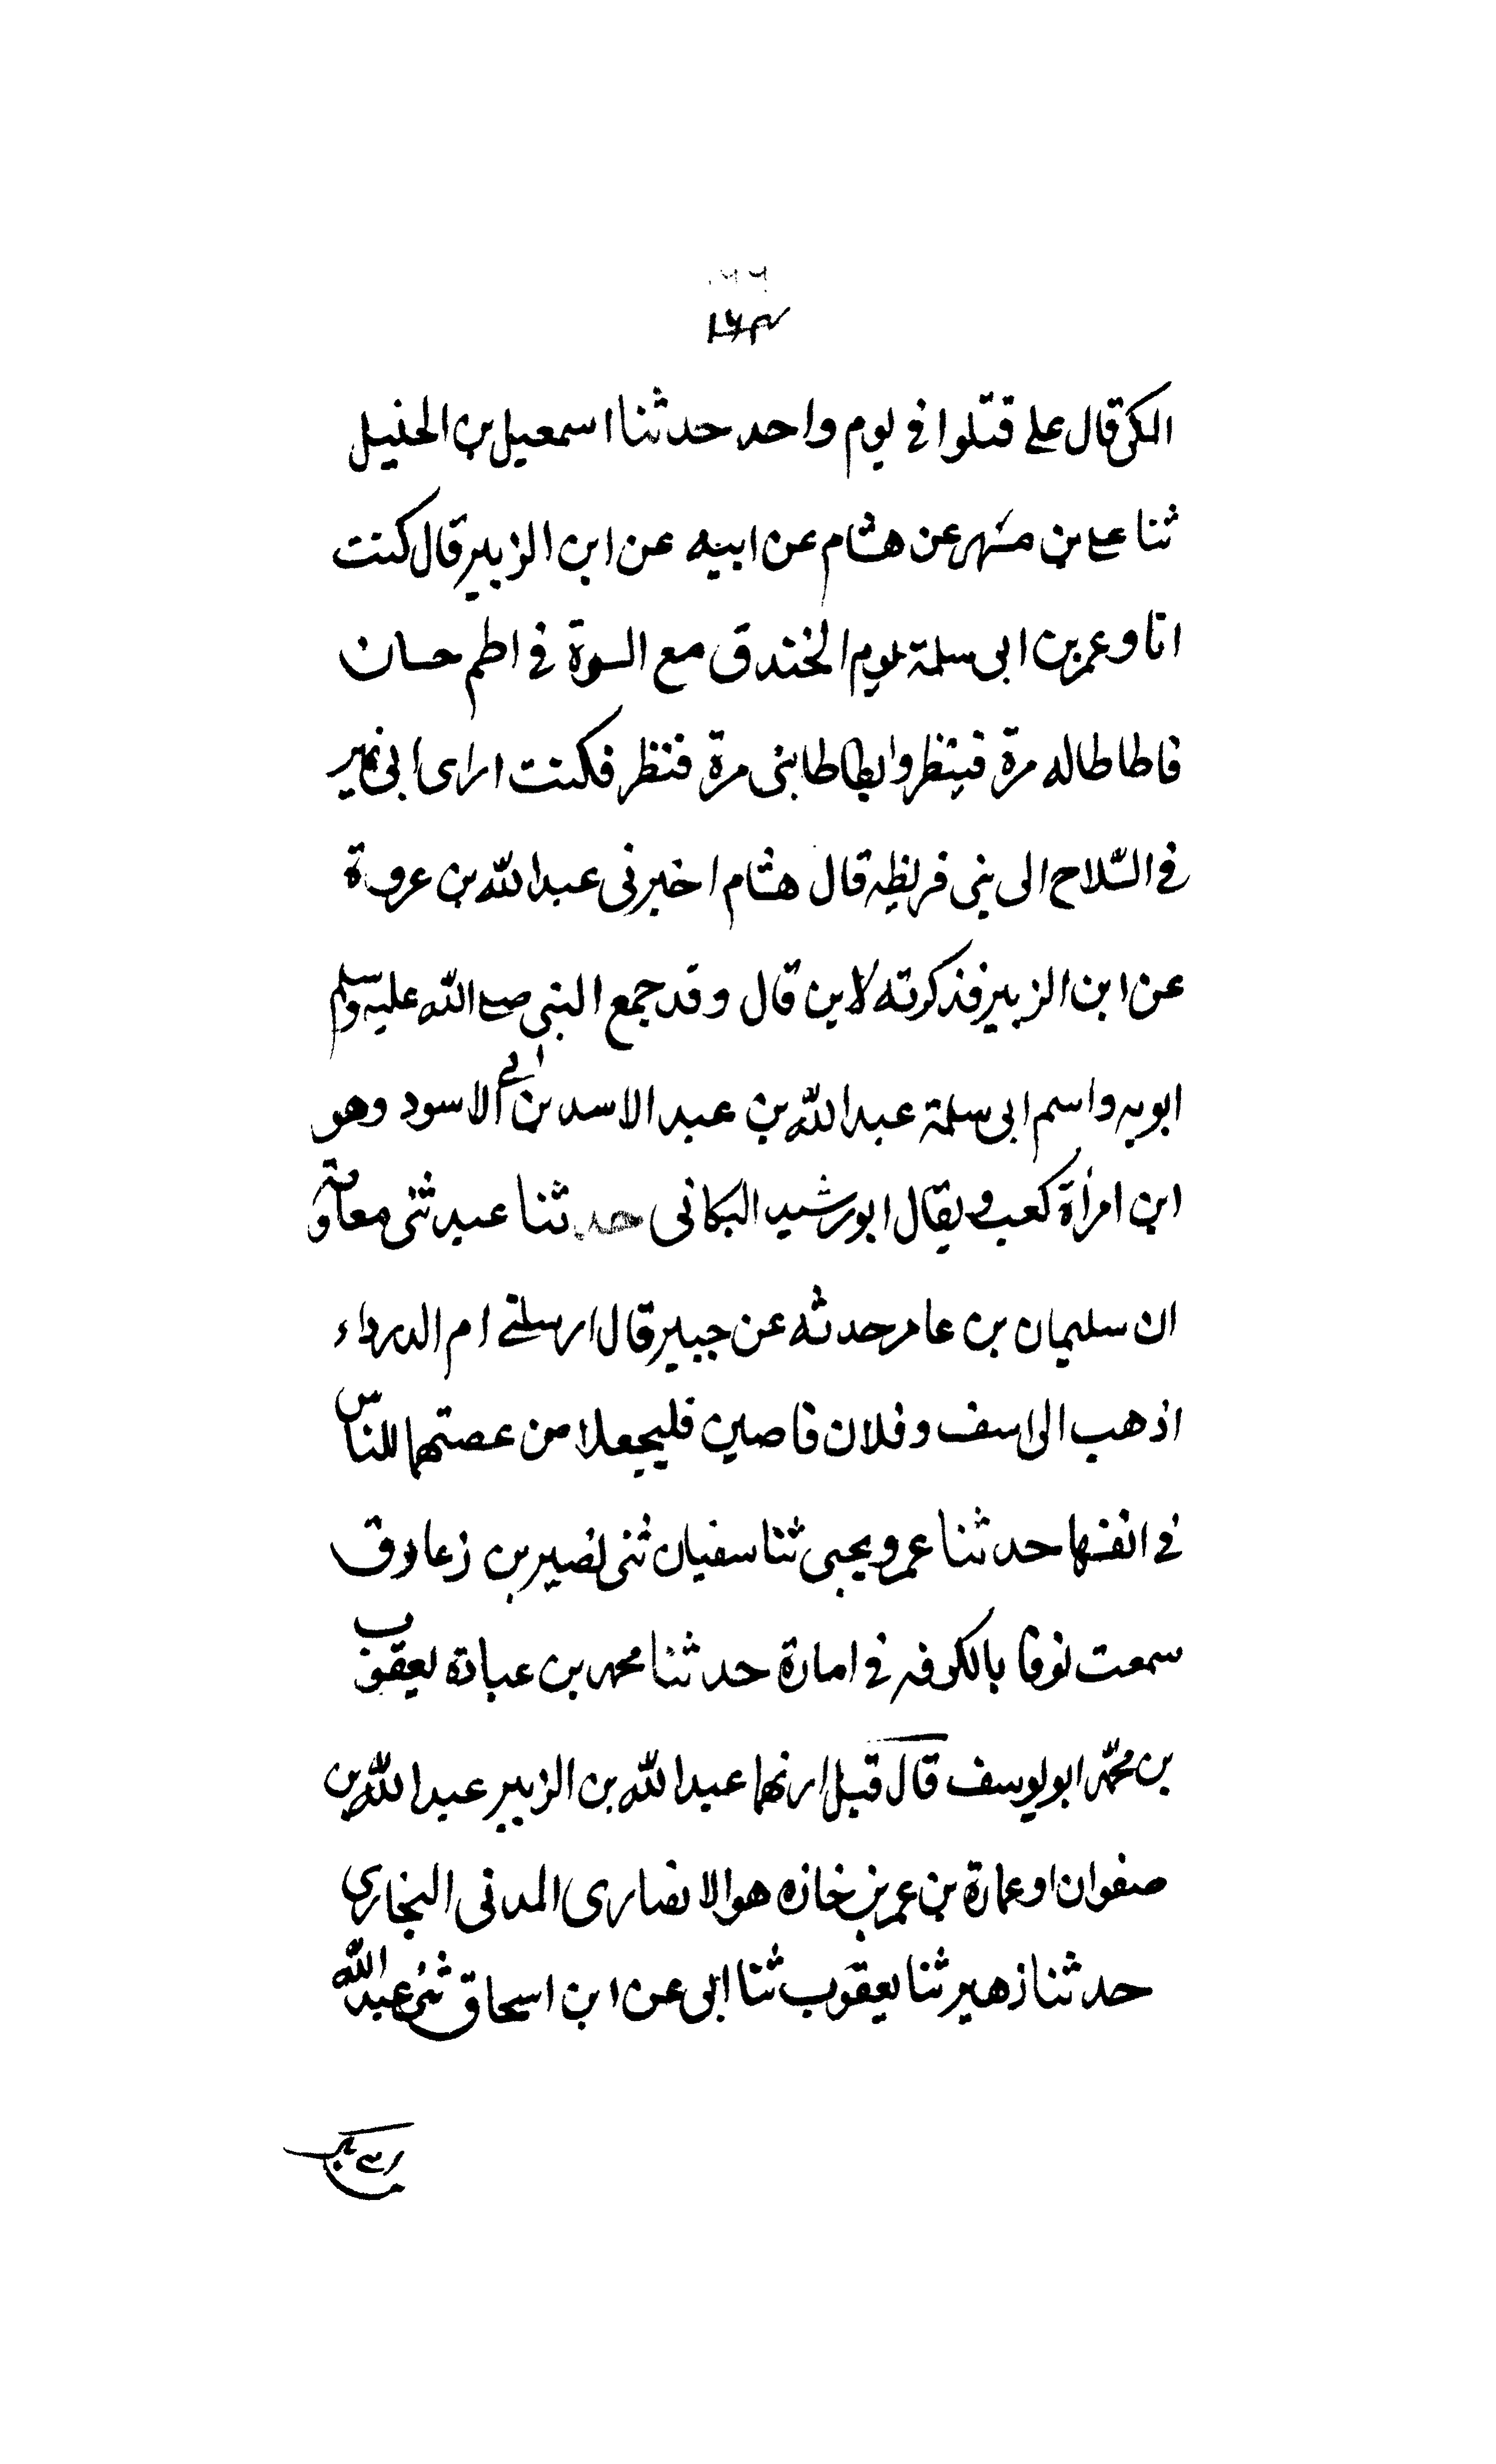 الكى قال على قتلوا فى يوم واحد حدثنا اسمعيل بن الخليل
ثنا على بن مسهر عن هشام عن ابيه عن ابن الزبير قال كنت
انا وعمر بن ابى سلمة يوم الخندق مع النسوة فى اطم حسان
فاطاطاله مرة فينظر ويطاطا بنى مرة فنظر فكنت ارى ابى يمر
فى السّلاح الى بنى قريظه قال هشام اخبرنى عبدالله بن عروة
عن ابن الزبير فذكرته لابى قال وقد جمع النبى صلى الله عليه وسلم
ابويه واسم ابى سلمة عبدالله بن عبد الاسد بن ابى الاسود وهو
ابن امرأة كعب ويقال ابو رشيد البكانى حدثنا عبد ثنى معاوية
ان سليمان بن عامر حدثه عن جبير قال ارسلنى ام الدرداء
اذهب الى اسف وفلان قاصين فليجعلا من عصتهما للناس
فى انفسها حدثنا عمرو يحيى ثنا سفيان ثنى نصير بن ذعلوق
سمعت نوفا بالكوفه فى امارة حدثنا محمد بن عبادة يعقوب
بن محمّد ابو يوسف قال قيل ارنهما عبدالله بن الزبير عبدالله بن
صفوان او عمارة بن عمر بن خازه هو الانصارى المدنى البخارى
حدثنا زهير ثنا يعقوب ثنا ابى عن ابن اسحاق ثنى عبدالله